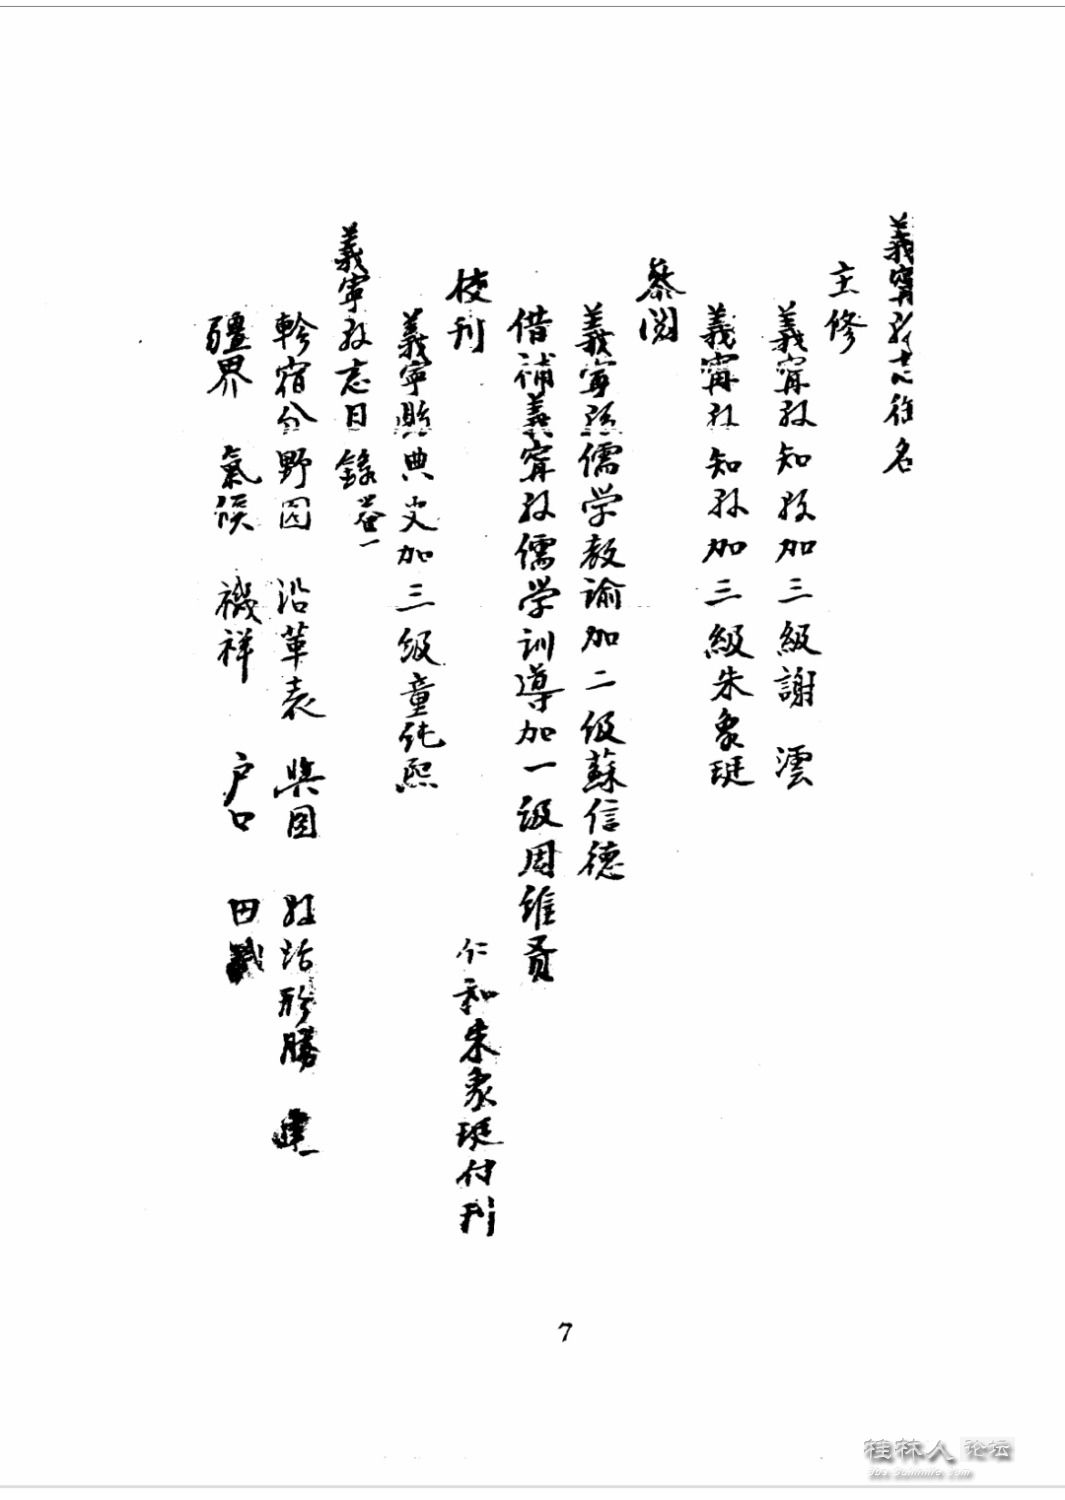 義寧縣志銜名
主修
義寧縣知縣加三級謝澐
義寧縣知縣加三級朱象珽
叅閲
義寧縣儒学教諭加二级蘇信德
借補義寧縣儒学训導加一级周維
校刊
仁和朱象珽付刊
義寧縣典史加三级童纯熙
義寧縣志目錄 卷一
軫宿分野図 沿革表 輿図 縣治形勝 建
疆界 氣候 禨祥 户口 田
7
桂林人论坛